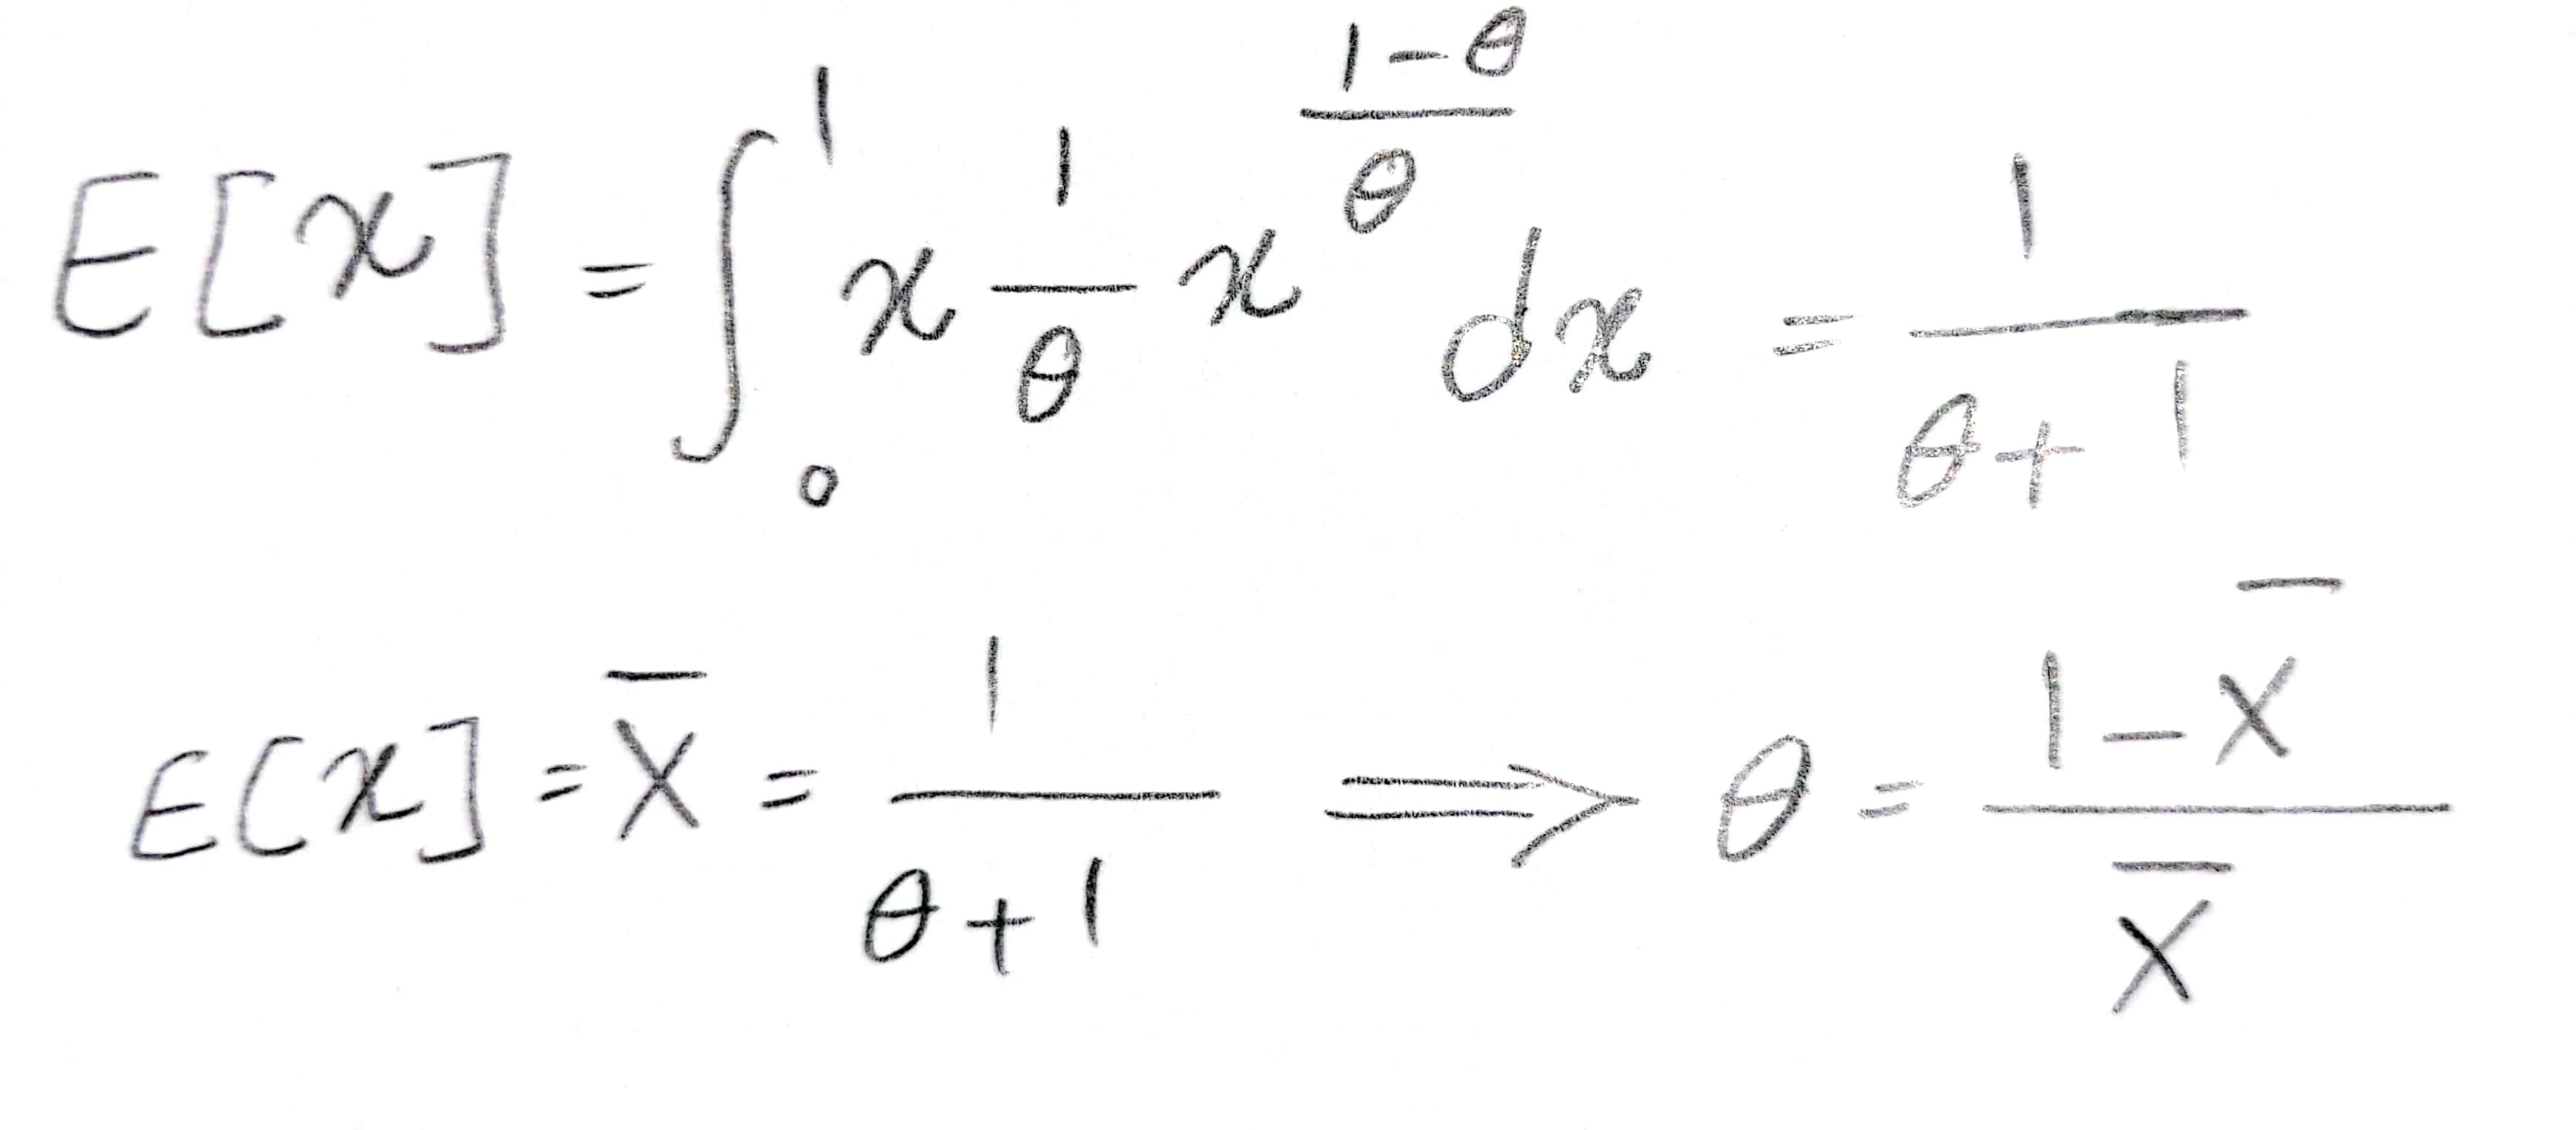 E[x] = ∫₀¹ x \frac{1}{θ} x^{\frac{1-θ}{θ}} dx = \frac{1}{θ+1}
E[x] = \overline{X} = \frac{1}{θ+1} ⟹ θ = \frac{1-\overline{X}}{\overline{X}}